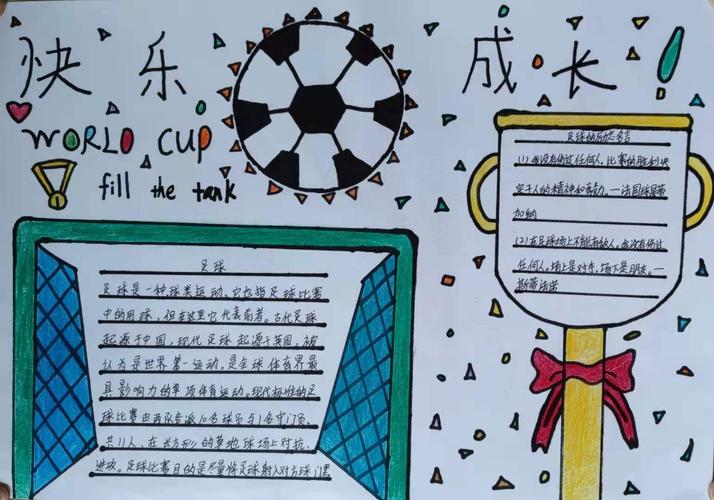 快乐
成长!
WORLD CUP
fill the tank
足球
足球是一种球类运动、它也指足球比赛
中的用球，但在这里它代表前者。古代足球
起源于中国，现代足球起源于英国，被
认为是世界第一运动，是全球体育界最
具影响力的单项体育运动。现代标准的足
球比赛由两队各派10名球员与1名守门员，
共11人，在长方形的草地球场上对抗、
进攻。足球比赛目的是尽量将足球射入对方球门里
足球的励志名言
(1)我没有伤过任何人，比赛的胜利决
定于人的精神和努力。一法国球星
加纳
(2)在足球场上不能有敌人。我没有伤过
任何人，场上是对手，场下是朋友。一